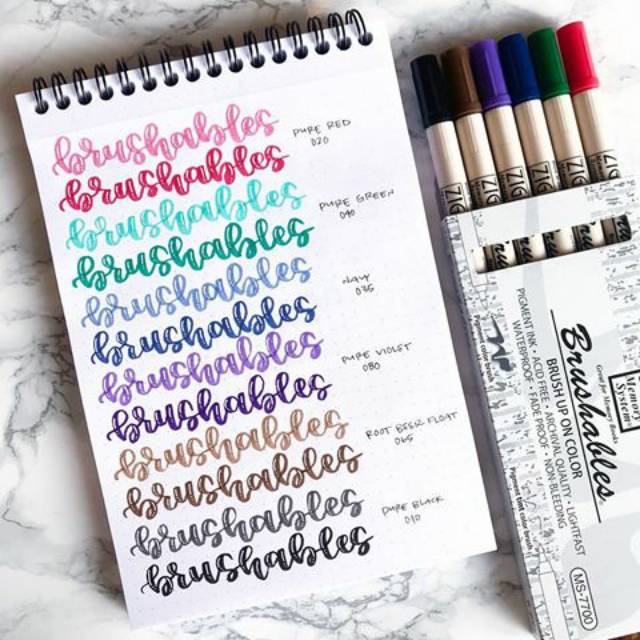 brushables
PURE RED
020
brushables
brushables
PURE GREEN
040
brushables
brushables
NAVY
035
brushables
brushables
PURE VIOLET
080
brushables
brushables
ROOT BEER FLOAT
065
brushables
brushables
PURE BLACK
010
brushables
ZIG
ZIG
ZIG
ZIG
ZIG
ZIG
Memory
System
Brushables
BRUSH UP ON COLOR
PIGMENT INK • ACID FREE • ARCHIVAL QUALITY • LIGHTFAST
WATERPROOF • FADE PROOF • NON-BLEEDING
MS-7700